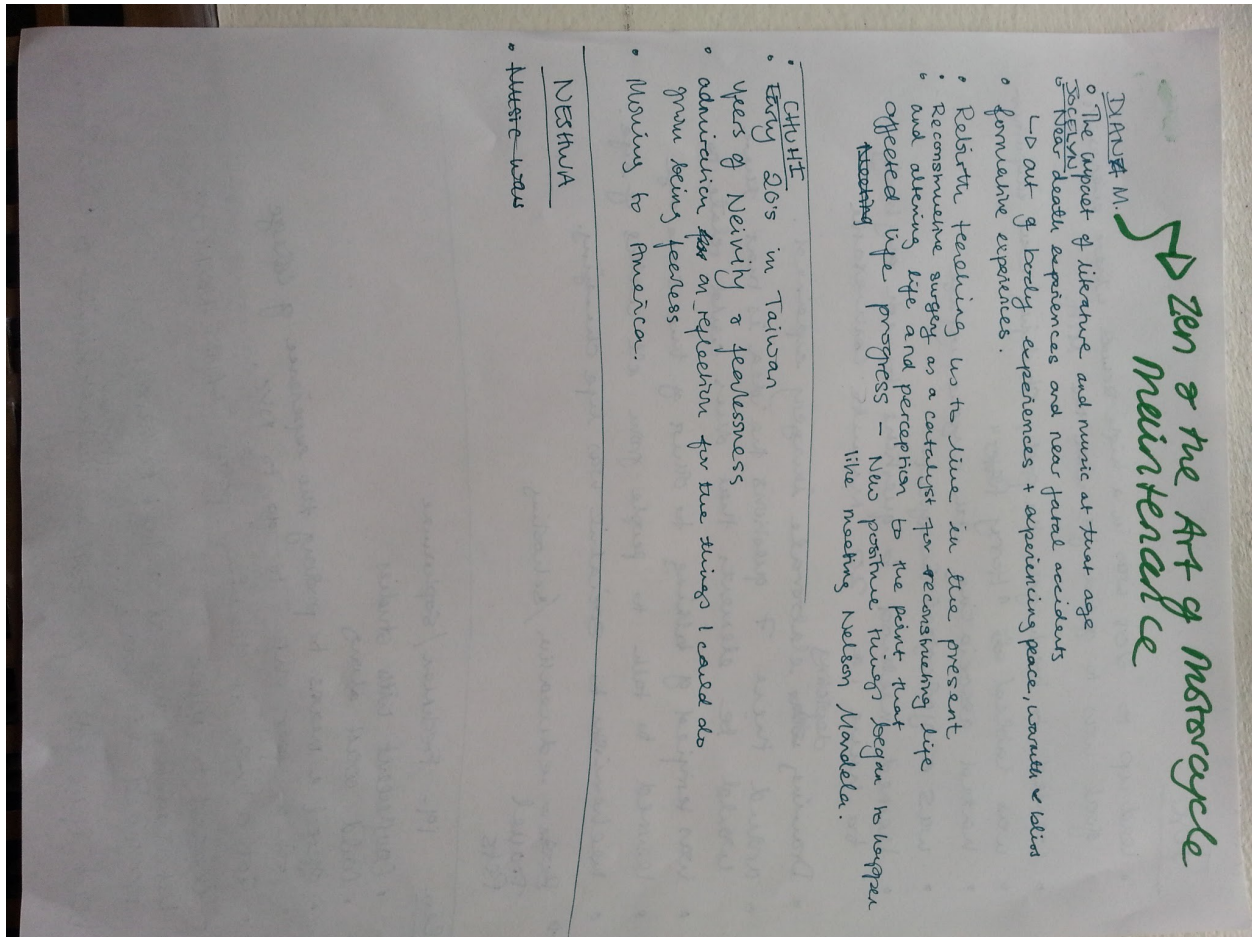 ↳ Zen & the Art of Motorcycle
Maintenance
DIANA M.
• The impact of literature and music at that age
JOCELYN
• Near death experiences and near fatal accidents
↳ out of body experiences + experiencing peace, warmth & bliss
• formative experiences.
• Rebirth teaching us to live in the present
• Reconstructive surgery as a catalyst for reconstructing life
• and altering life and perception to the point that
affected life progress – New positive things began to happen
Meeting like meeting Nelson Mandela.
CHUHI
• Early 20's in Taiwan
Years of Neivity & fearlessness
• admiration for on reflection for the things I could do
grown being fearless
• Moving to America.
NESHWA
• Music was